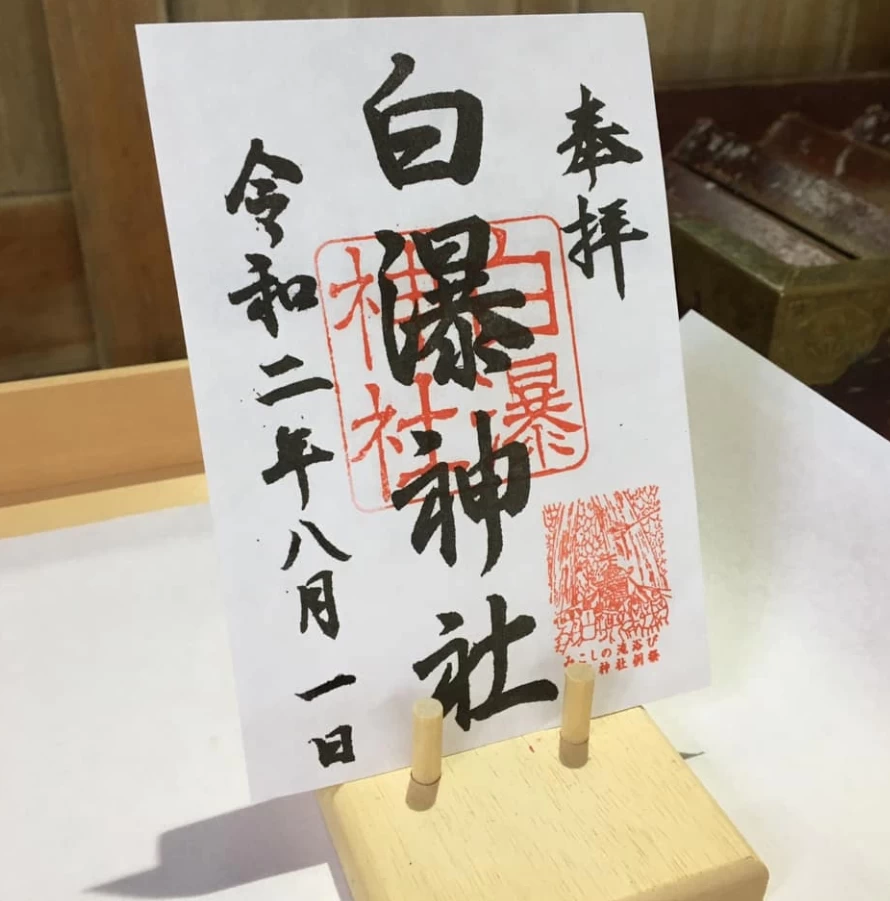 奉拝
白瀑神社
令和二年八月一日
白瀑
神社
みこしの滝浴び
神社例祭